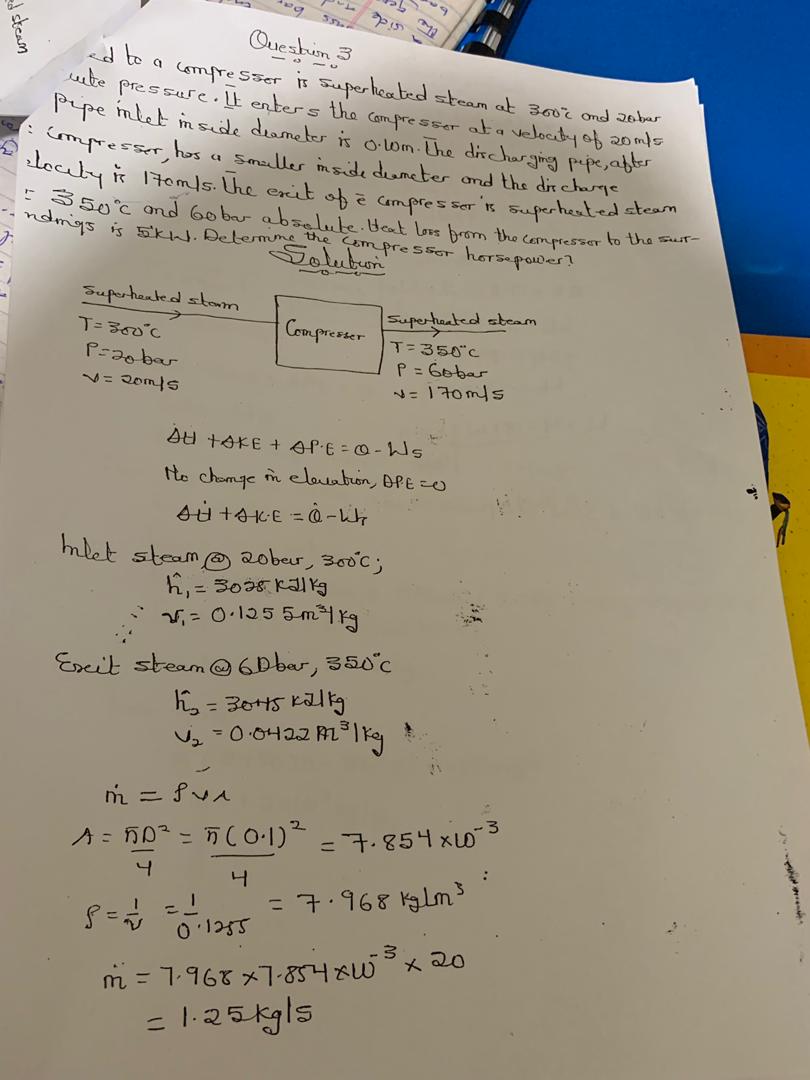 Question 3
ed to a compresser is superheated steam at 300°c and 20bar
lute pressure. It enters the compresser at a velocity of 20m/s
pipe inlet inside diameter is 0.10m. The discharging pipe, after
: compresser, has a smaller inside diameter and the discharge
locity is 170m/s. The exit of ē compresser is superheated steam
= 350°c and 60bar absolute. Heat loss from the compresser to the surr-
ndings is 5kW. Determine the compresser horsepower?
Solution
Superheated steam
T = 300°c
P = 20bar
v = 20m/s
Compresser
Superheated steam
T = 350°c
P = 60bar
v = 170m/s
ΔH + ΔKE + ΔP.E = Q - Ws
No change in elevation, ΔPE = 0
ΔḢ + ΔK.E = Q̇ -
Inlet steam @ 20bar, 300°c;
ĥ₁ = 3025 kJ/kg
v₁ = 0.1255m³/kg
Exit steam @ 60bar, 350°c
ĥ₂ = 3045 kJ/kg
v₂ = 0.0422 m³/kg
ṁ = ρvA
A = πD²/4 = π(0.1)²/4 = 7.854 × 10⁻³
ρ = 1/v = 1/0.1255 = 7.968 kg/m³
ṁ = 7.968 × 7.854 × 10⁻³ × 20
= 1.25kg/s